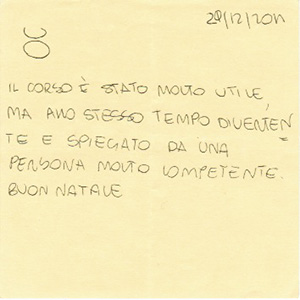 29/12/2011
OC
IL CORSO È STATO MOLTO UTILE,
MA ALLO STESSO TEMPO DIVERTEN
TE E SPIEGATO DA UNA
PERSONA MOLTO COMPETENTE.
BUON NATALE